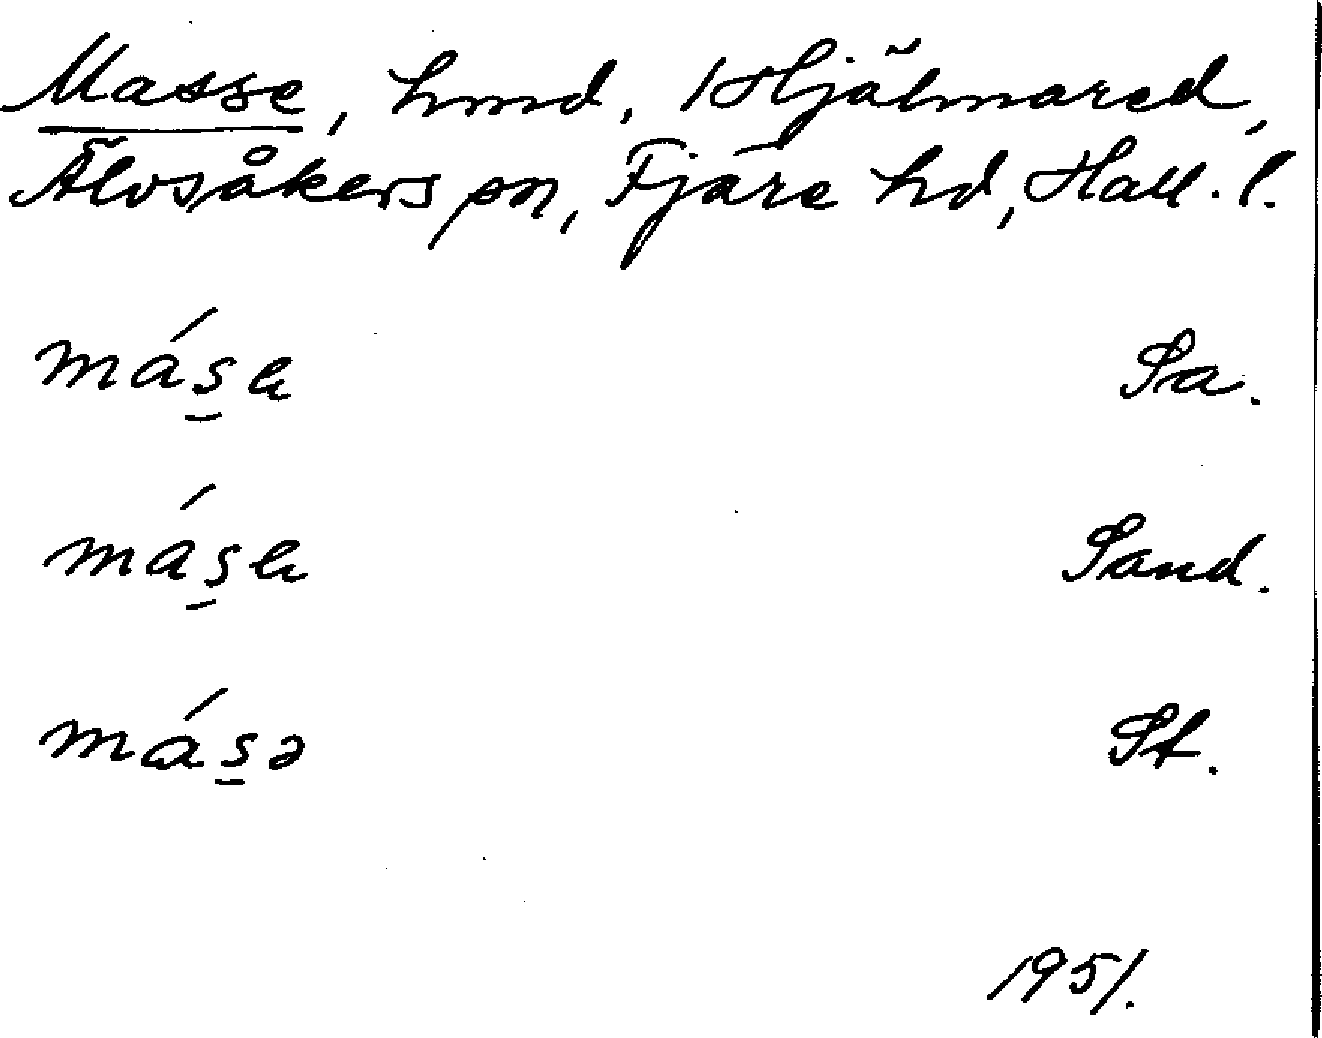 Masse, hmd, Hjälmared,
Älvsåkers sn, Fjäre hd, Hall. l.
máse Sa.
máse Sand.
másə St.
1951.